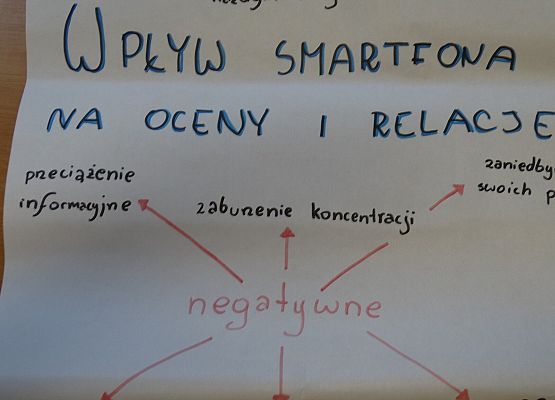 WPŁYW SMARTFONA
NA OCENY I RELACJE
przeciążenie
informacyjne
zaburzenie koncentracji
swoich
negatywne